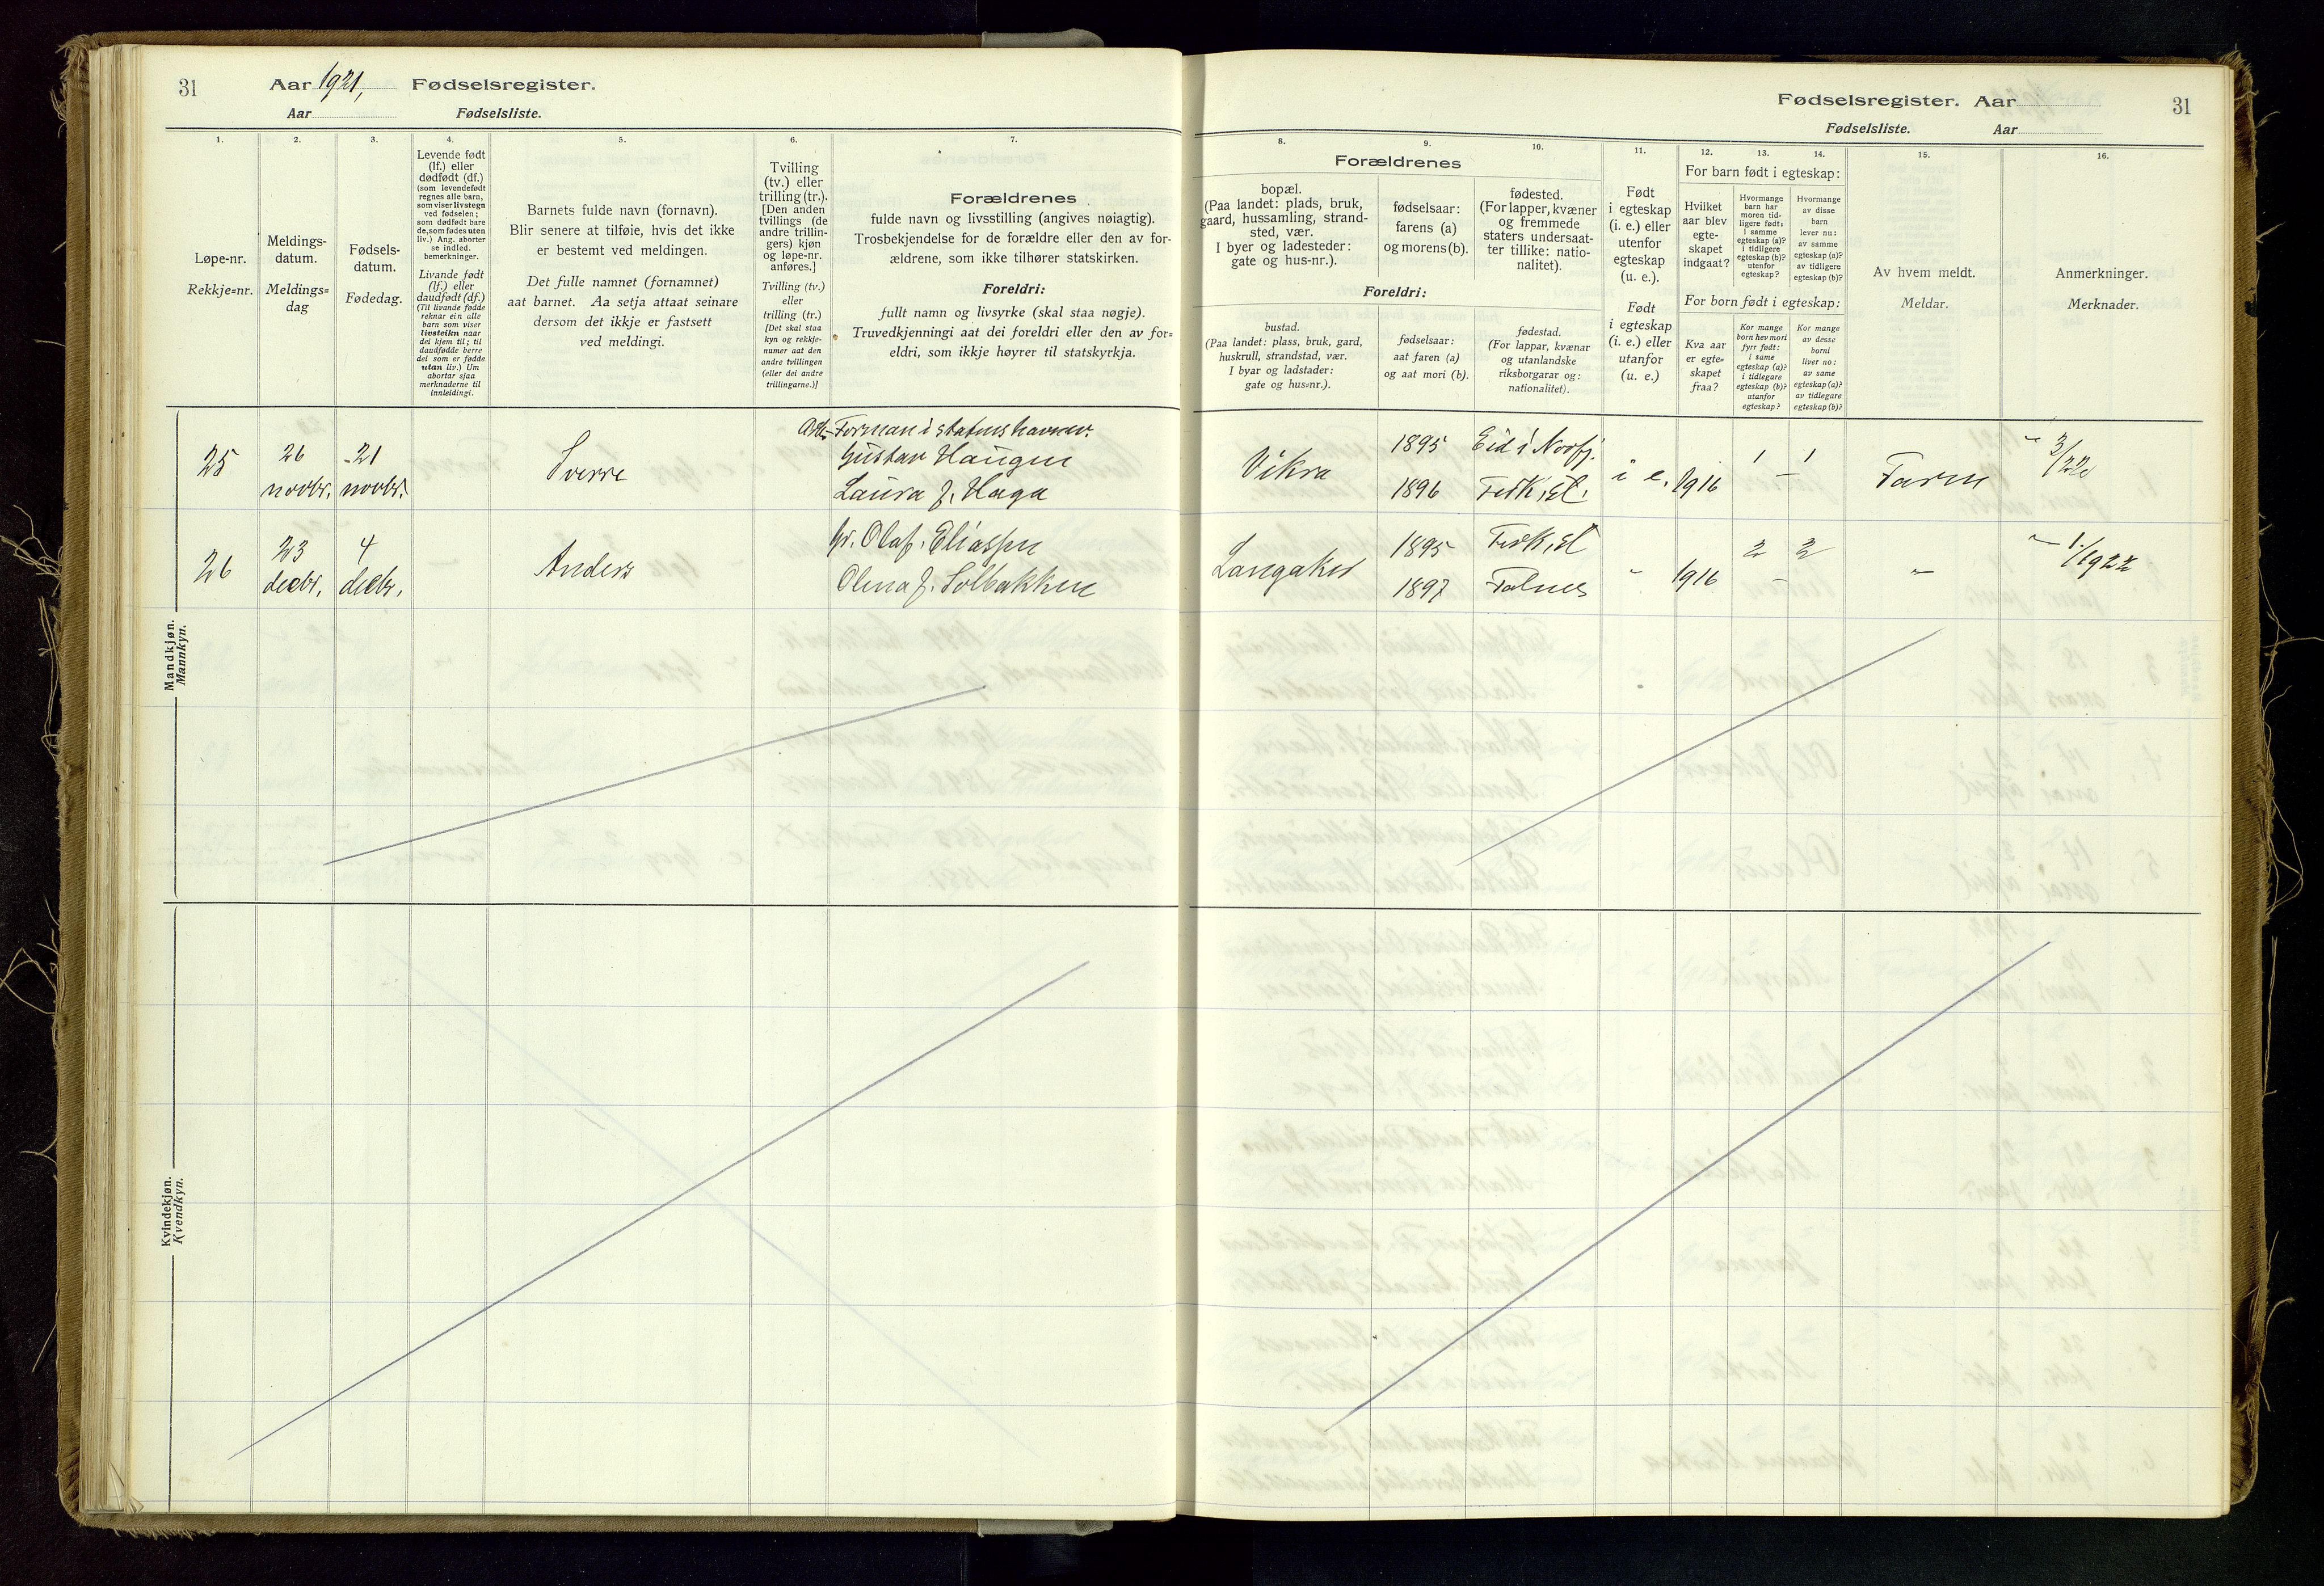 31
Aar 1921, Fødselsregister.
Aar Fødselsliste.
Fødselsregister. Aar
31
Fødselsliste. Aar
1.
Løpe-nr.
Rekkje-nr.
2.
Meldings-
datum.
Meldings-
dag
3.
Fødsels-
datum.
Fødedag.
4.
Levende født
(lf.) eller
dødfødt (df.)
(som levendefødt
regnes alle barn,
som viser livstegn
ved fødselen;
som dødfødt bare
de, som fødes uten
liv.) Ang. aborter
se indled.
bemerkninger.
Livande født
(lf.) eller
daudfødt (df.)
(Til livande fødde
reknar ein alle
barn som viser
livsteikn naar
dei kjem til; til
daudfødde berre
dei som er fødde
utan liv.) Um
abortar sjaa
merknaderne til
innleidingi.
5.
Barnets fulde navn (fornavn).
Blir senere at tilføie, hvis det ikke
er bestemt ved meldingen.
Det fulle namnet (fornamnet)
aat barnet. Aa setja attaat seinare
dersom det ikkje er fastsett
ved meldingi.
6.
Tvilling
(tv.) eller
trilling (tr.).
[Den anden
tvillings (de
andre trillin-
gers) kjøn
og løpe-nr.
anføres.]
Tvilling (tv.)
eller
trilling (tr.)
[Det skal staa
kyn og rekkje-
numer aat den
andre tvillingen
(eller dei andre
trillingarne.)]
7.
Forældrenes
fulde navn og livsstilling (angives nøiagtig).
Trosbekjendelse for de forældre eller den av for-
ældrene, som ikke tilhører statskirken.
Foreldri:
fullt namn og livsyrke (skal staa nøgje).
Truvedkjenningi aat dei foreldri eller den av for-
eldri, som ikkje høyrer til statskyrkja.
8.
Forældrenes
bopæl.
(Paa landet: plads, bruk,
gaard, hussamling, strand-
sted, vær.
I byer og ladesteder:
gate og hus-nr.).
Foreldri:
bustad.
(Paa landet: plass, bruk, gard,
huskrull, strandstad, vær.
I byar og ladstader:
gate og hus-nr.).
9.
fødselsaar:
farens (a)
og morens (b).
fødselsaar:
aat faren (a)
og aat mori (b).
10.
fødested.
(For lapper, kvæner
og fremmede
staters undersaat-
ter tillike: natio-
nalitet).
fødestad.
(For lappar, kvænar
og utanlandske
riksborgarar og:
nationalitet).
11.
Født
i egteskap
(i. e.) eller
utenfor
egteskap
(u. e.).
Født
i egteskap
(i. e.) eller
utanfor
(u. e.)
12.
For barn født i egteskap:
Hvilket
aar blev
egte-
skapet
indgaat?
For born født i egteskap:
Kva aar
er egte-
skapet
fraa?
13.
Hvormange
barn har
moren tid-
ligere født:
i samme
egteskap (a)?
i tidligere
egteskap (b)?
utenfor
egteskap?
Kor mange
born hev mori
fyrr født:
i same
egteskap (a)?
i tidlegare
egteskap (b)?
utanfor
egteskap?
14.
Hvormange
av disse
barn
lever nu:
av samme
egteskap (a)?
av tidligere
egteskap (b)?
Kor mange
av desse
borni
liver no:
av same
egteskap (a)?
av tidlegare
egteskap (b)?
15.
Av hvem meldt.
Meldar.
16.
Anmerkninger.
Merknader.
Mandkjøn.
Mannkyn.
25
26
novbr.
21
novbr.
Sverre
Forman i statens havnev.
Gustav Haugen
Laura J. Haga
Vikra
1895
1896
Eid i Nordfj.
i e.
1916
1
1
Faren
3/22
26
23
decbr.
4
decbr.
Anders
Olaf Eliassen
Olena J. Solbakken
Langaker
1895
1897
Falnes
"
1916
2
2
"
1/1922
Kvindekjøn.
Kvendkyn.